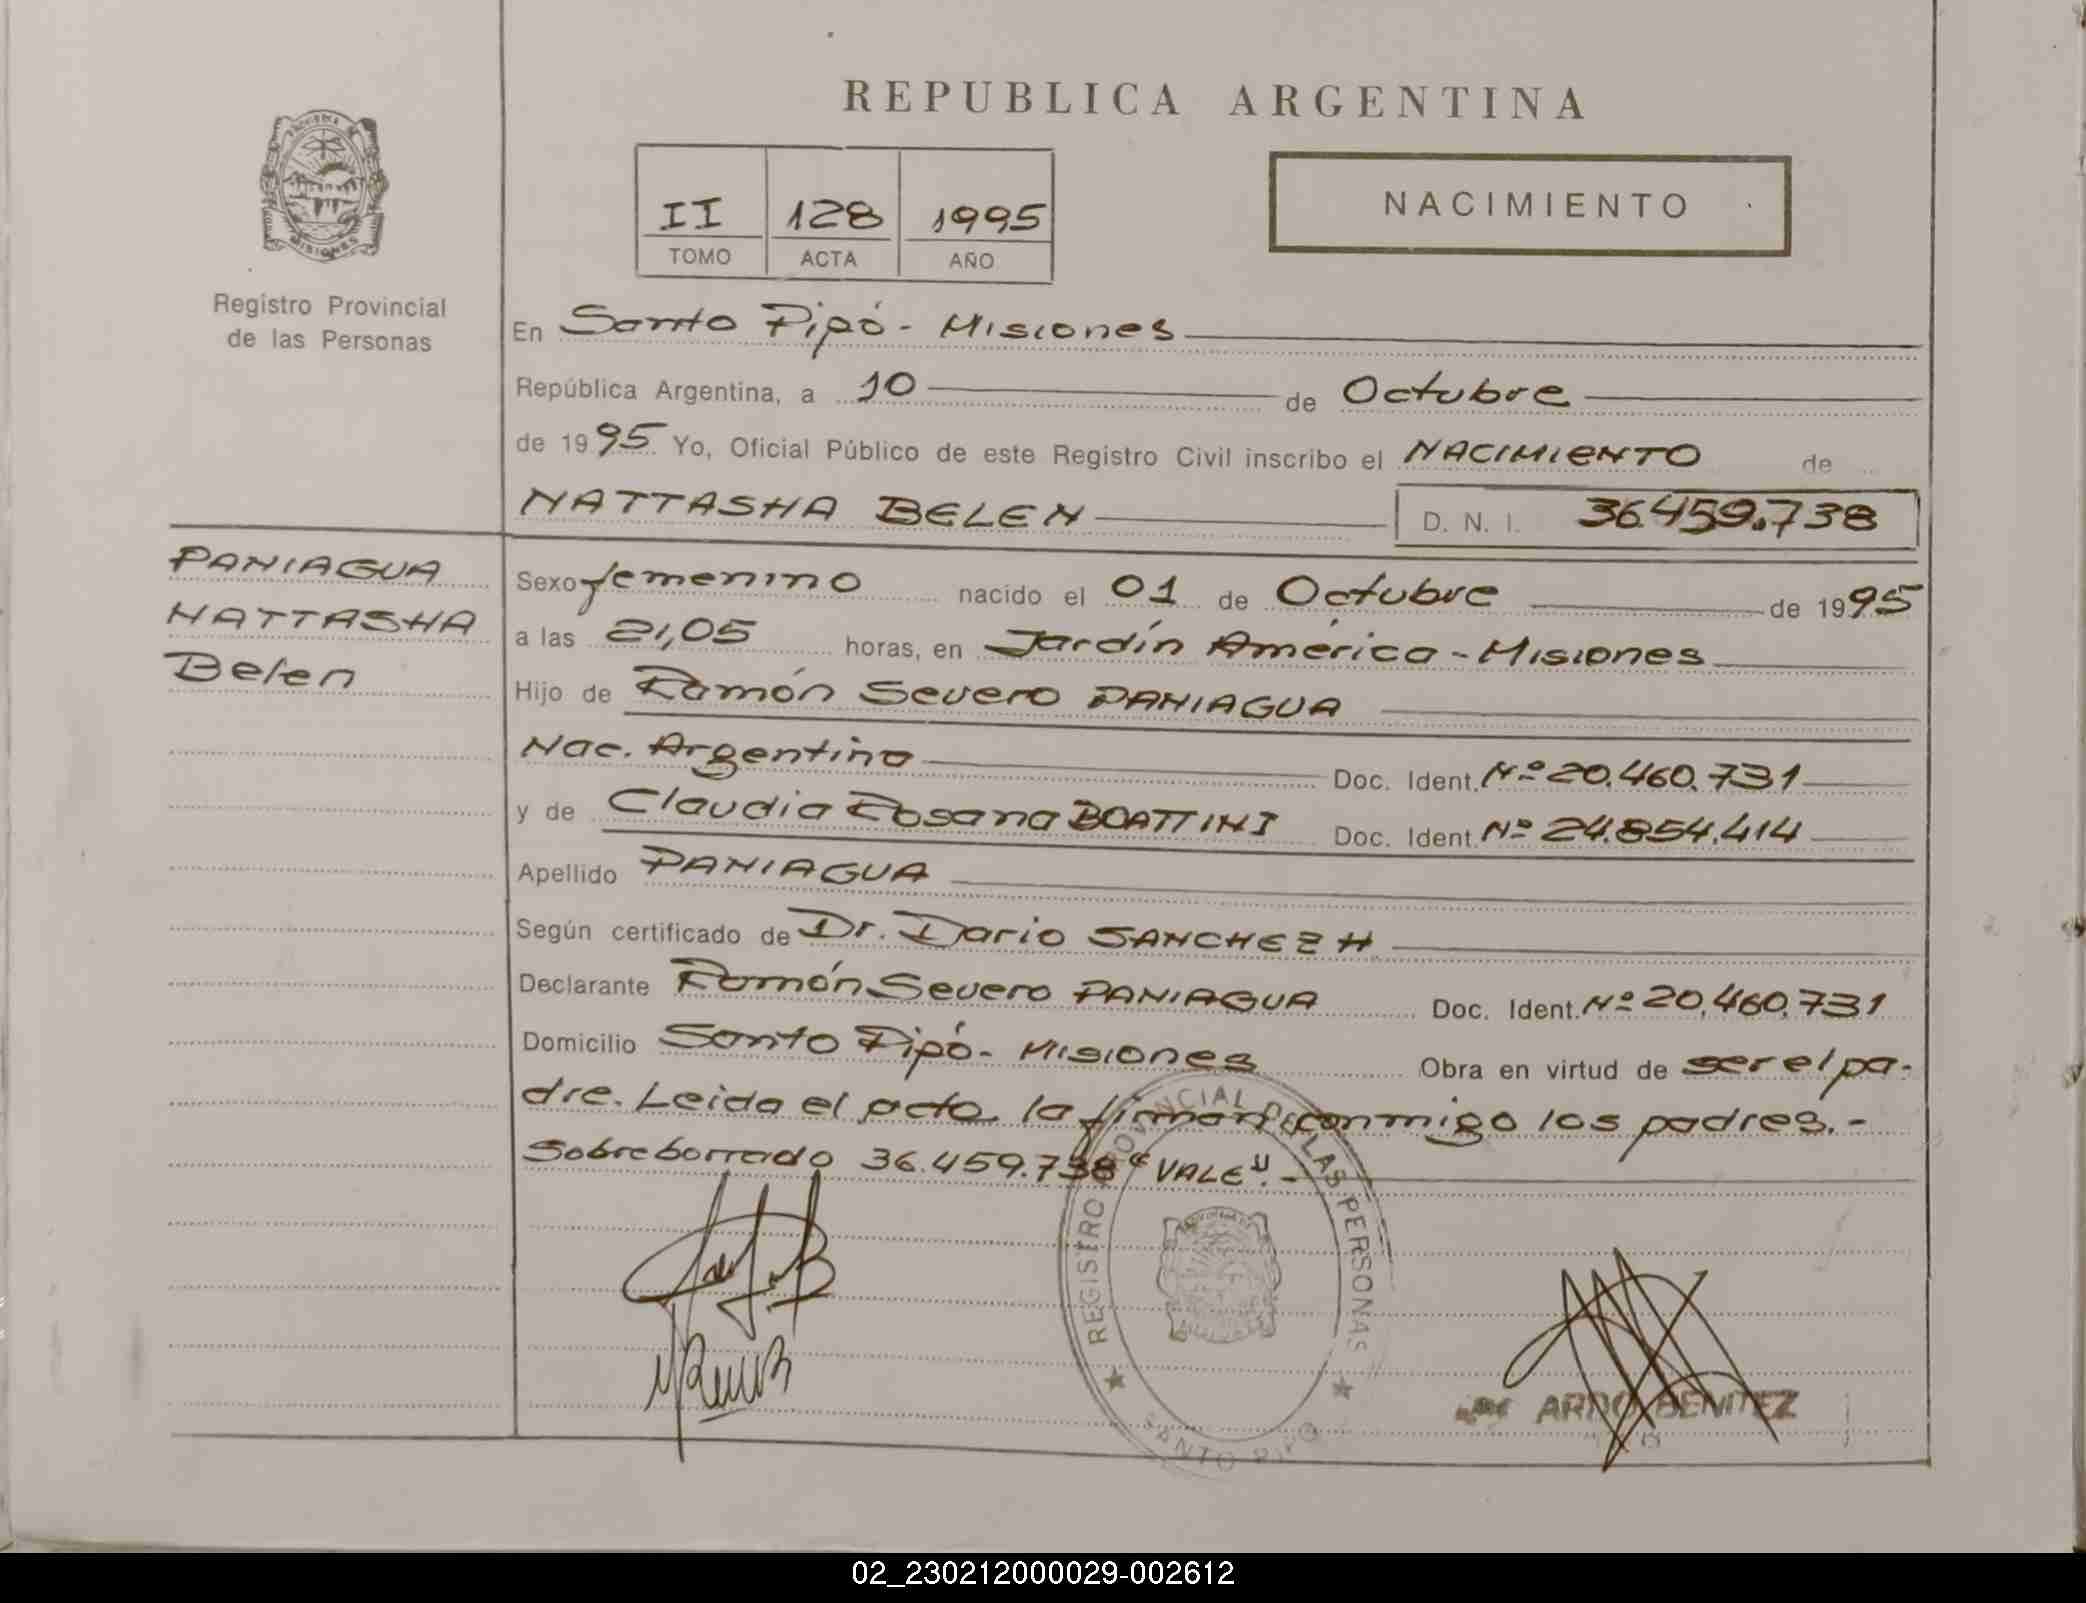 REPUBLICA ARGENTINA
II 128 1995
TOMO ACTA AÑO
NACIMIENTO
PROVINCIA DE
MISIONES
Registro Provincial
de las Personas
En Santo Pipó - Misiones
República Argentina, a 10 de Octubre
de 1995 Yo, Oficial Público de este Registro Civil inscribo el NACIMIENTO de
NATTASHA BELEN D. N. I. 36.459.738
PANIAGUA
NATTASHA
Belen
Sexo femenino nacido el 01 de Octubre de 1995
a las 21,05 horas, en Jardín América - Misiones
Hijo de Ramón Severo PANIAGUA
Nac. Argentino Doc. Ident. Nº 20.460.731
y de Claudia Rosana BOATTINI Doc. Ident. Nº 24.854.414
Apellido PANIAGUA
Según certificado de Dr. Dario SANCHEZ H
Declarante Ramón Severo PANIAGUA Doc. Ident. Nº 20.460.731
Domicilio Santo Pipó - Misiones Obra en virtud de ser el pa-
dre. Leida el acta la firman conmigo los padres. -
Sobreborrado 36.459.738 "VALE". -
REGISTRO PROVINCIAL DE LAS PERSONAS
SANTO PIPO
ARDO BENITEZ
02_230212000029-002612